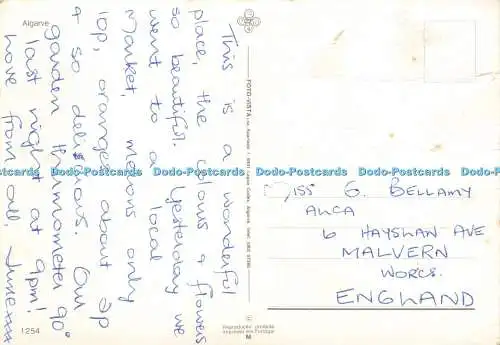 Algarve
This is a wonderful
place, the colours & flowers
so beautiful. Yesterday we
went to a local
market, melons only
10p, oranges about 2p
& so delicious. Our
garden thermometer 90°
last night at 9pm!
Love from all. June xxxx
FOTO-VISTA
MISS G. BELLAMY
6 HAYSLAN AVE
MALVERN
WORCS.
ENGLAND
1254
Reprodução proibida
Impresso em Portugal
M
Dodo-Postcards Dodo-Postcards Dodo-Postcards Dodo-Postcards
Dodo-Postcards Dodo-Postcards Dodo-Postcards Dodo-Postcards